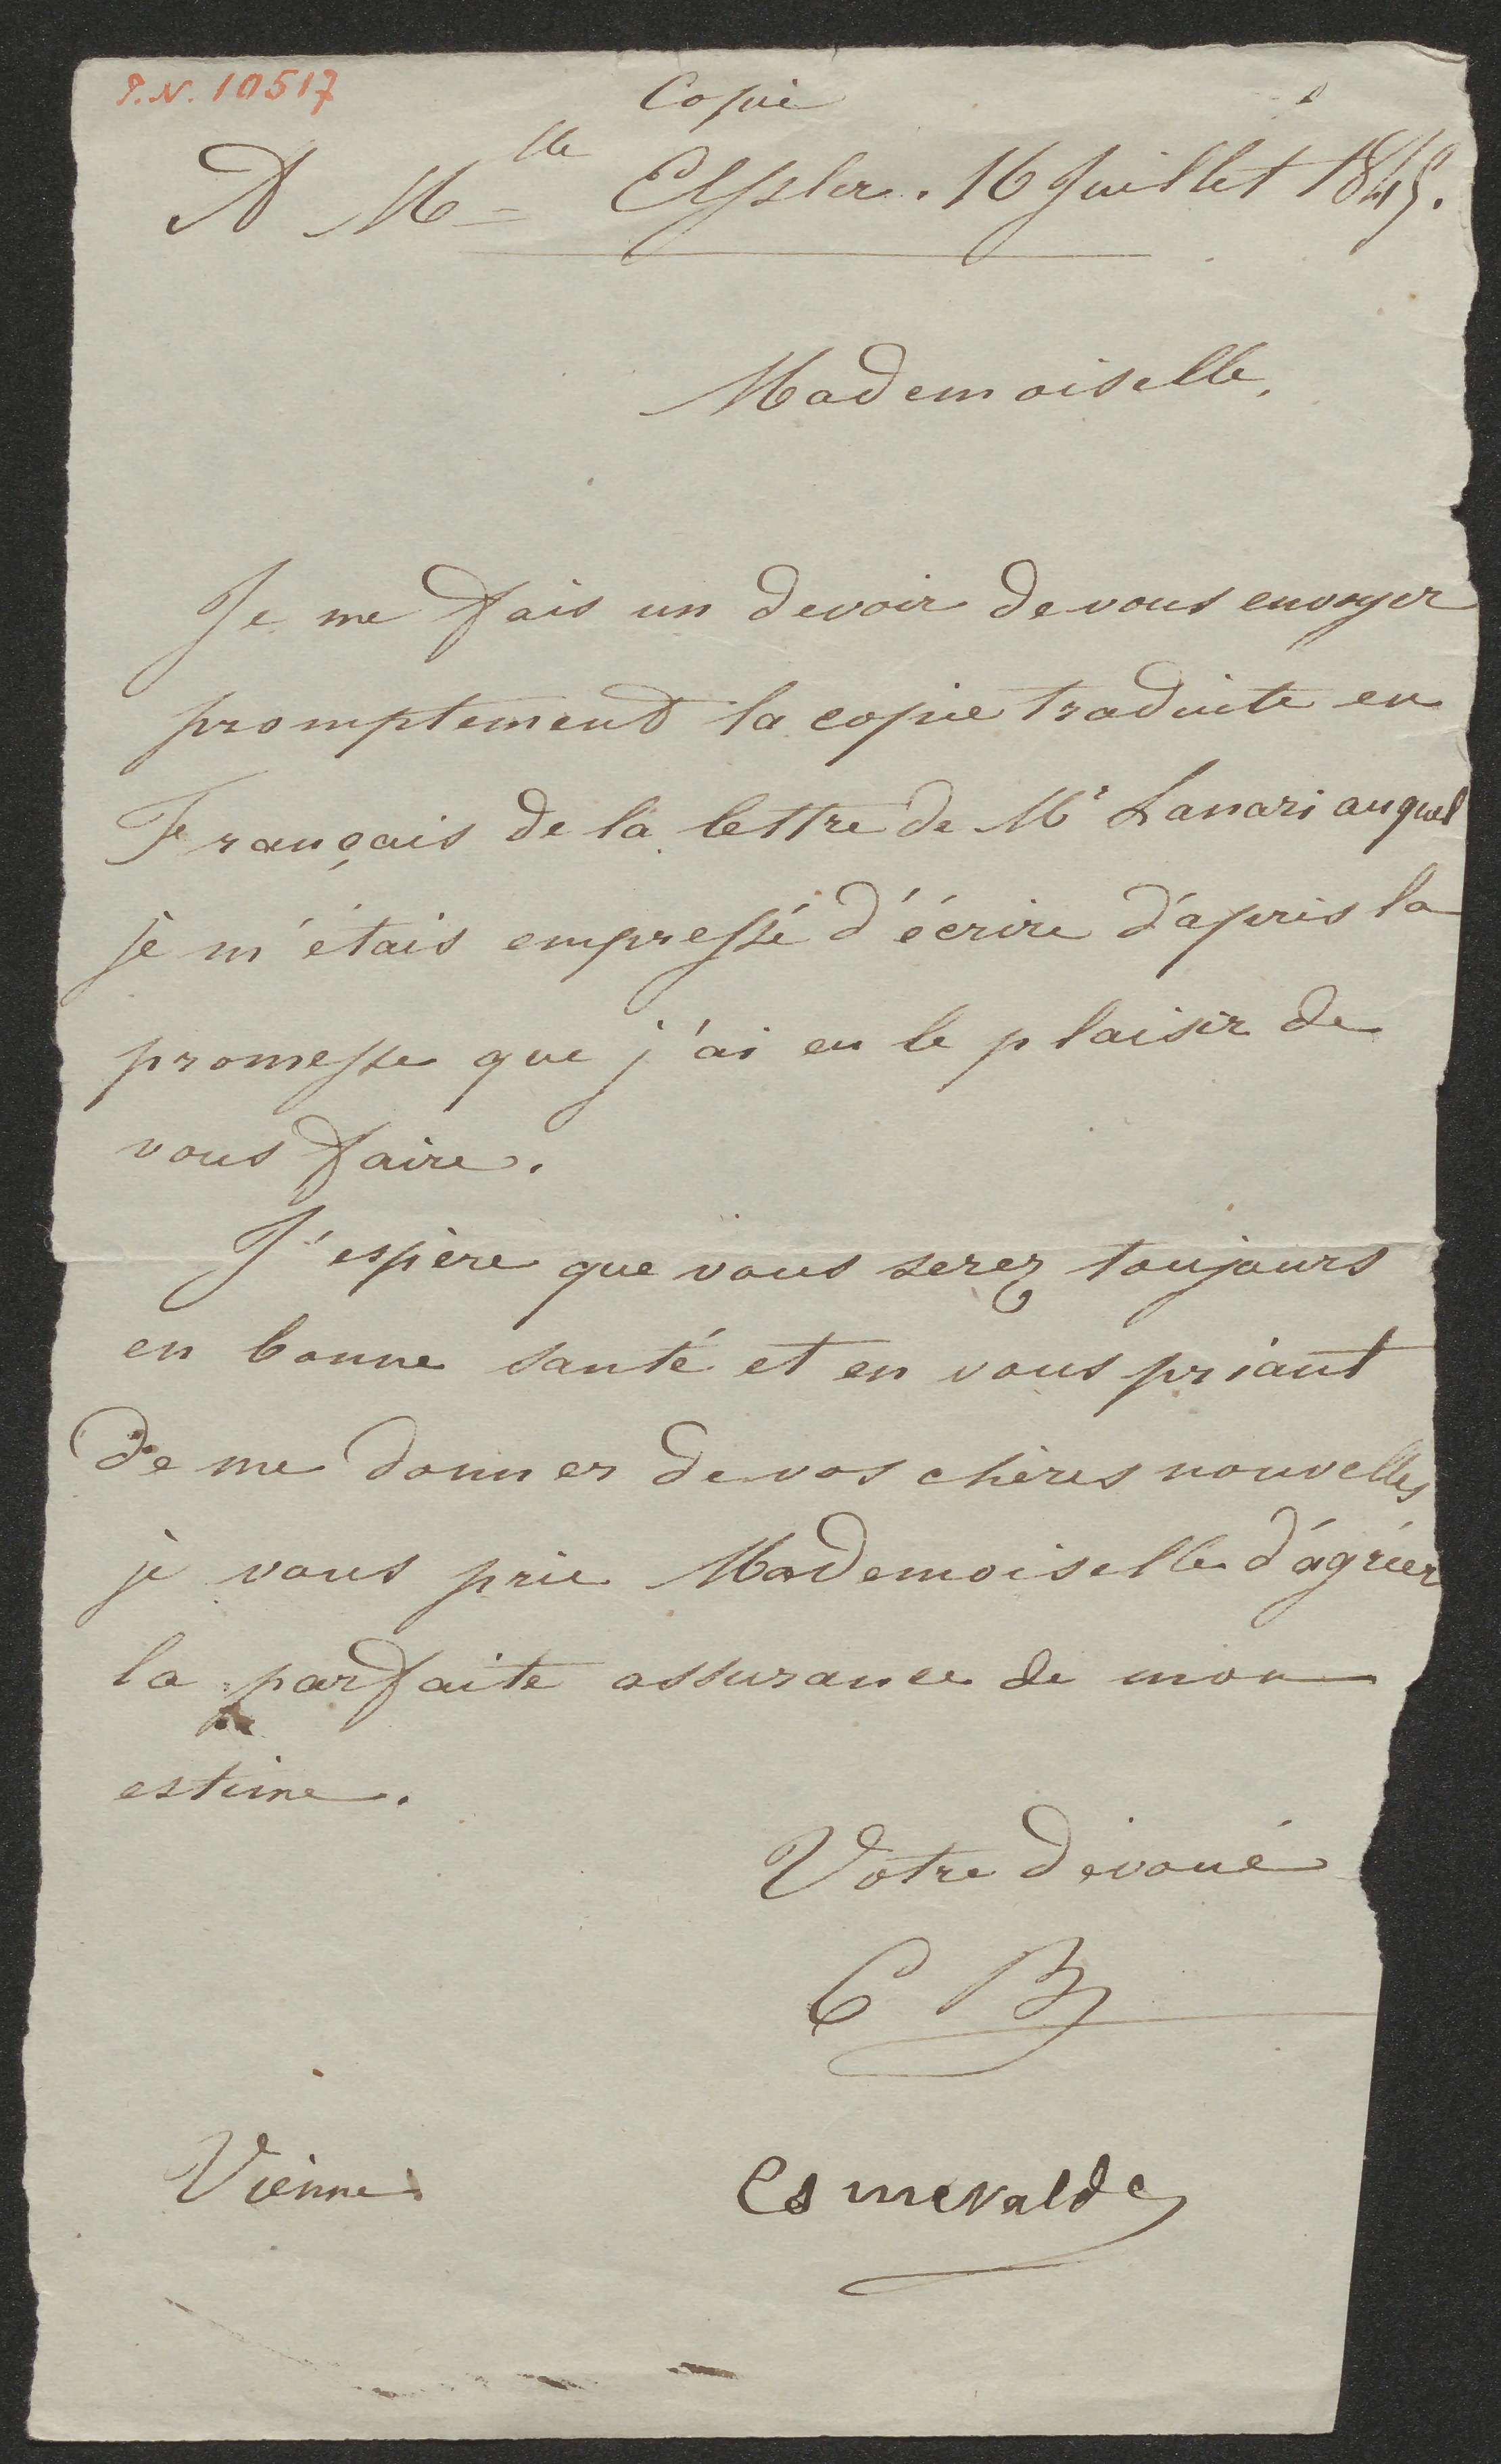 P.N. 10517
Copie
A Mlle Elssler. 16 Juillet 1845.
Mademoiselle,
Je me fais un devoir de vous envoyer
promptement la copie traduite en
Français de la lettre de Mr Lanari auquel
je m'étais empressé d'écrire d'après la
promesse que j'ai eu le plaisir de
vous faire.
J'espère que vous serez toujours
en bonne santé et en vous priant
de me donner de vos chères nouvelles
je vous prie Mademoiselle d'agréer
la parfaite assurance de mon
estime.
Votre dévoué
C B
Vienne
Esmeralde